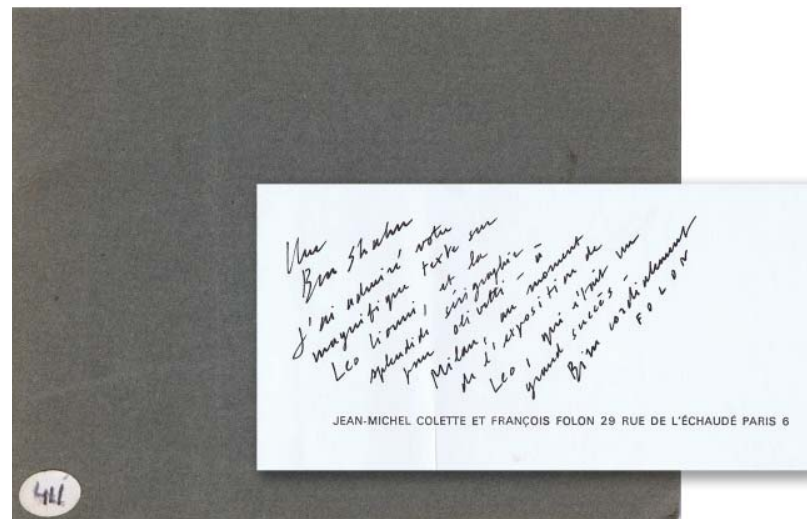 Ben Shahn
J'ai admiré votre
magnifique texte sur
Leo Lionni, et la
splendide sérigraphie
pour Olivetti - à
Milan, au moment
de l'exposition de
Leo, qui était un
grand succès -
Bien cordialement
FOLON
JEAN-MICHEL COLETTE ET FRANÇOIS FOLON 29 RUE DE L'ÉCHAUDÉ PARIS 6